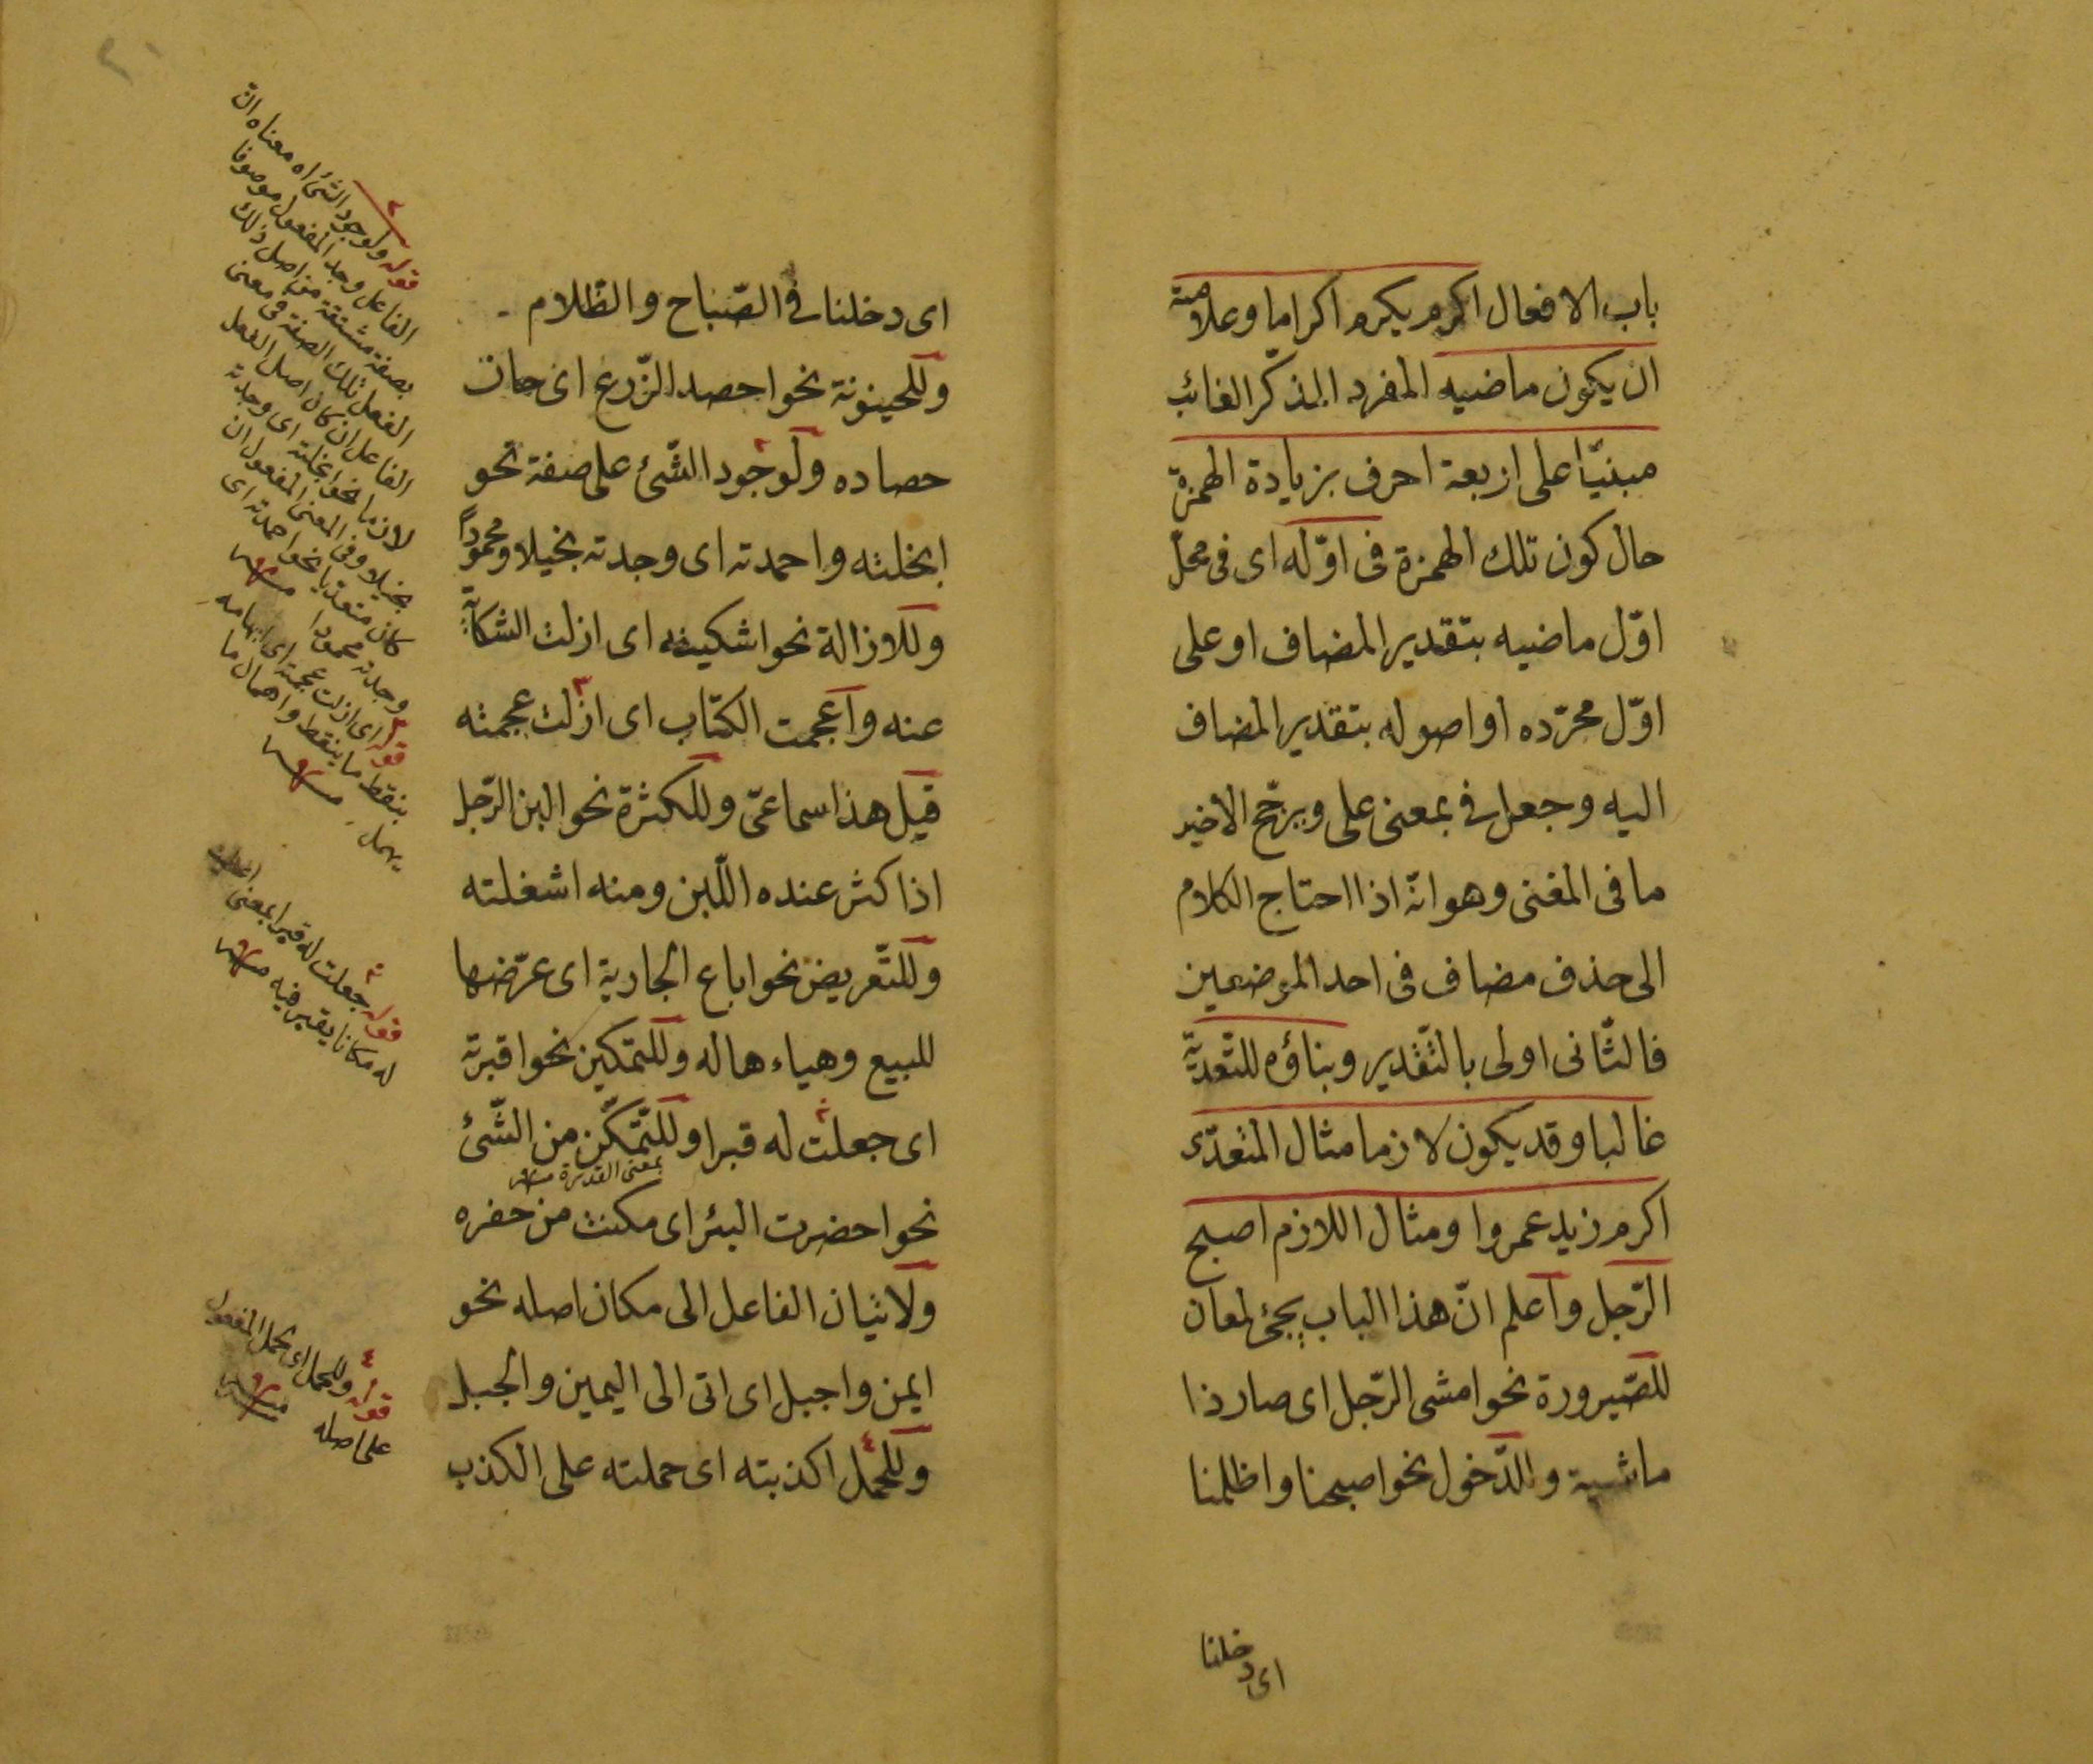 باب الافعال اكرم يكرم اكراما وعلامته
ان يكون ماضيه المفرد المذكّر الغائب
مبنيّا على اربعة احرف بزيادة الهمزة
حال كون تلك الهمزة فى اوّله اى فى محلّ
اوّل ماضيه بتقدير المضاف او على
اوّل مجرّده او اصوله بتقدير المضاف
اليه وجعل فى بمعنى على ويرجّح الاخير
ما فى المغنى وهو انّه اذا احتاج الكلام
الى حذف مضاف فى احد الموضعين
فالثّانى اولى بالتّقدير وبناؤه للتّعديّة
غالبا وقد يكون لازما مثال المتعدّى
اكرم زيد عمروا ومثال اللازم اصبح
الرّجل واعلم انّ هذا الباب يجئ لمعان
للصّيرورة نحو امشى الرّجل اى صار ذا
ماشية والدّخول نحو اصبحنا واظلمنا
اى دخلنا
٢٠
اى دخلنا فى الصّباح والظّلام
وللحينونة نحو احصد الزّرع اى حان
حصاده ولوجود الشّئ على صفة نحو
ابخلته واحمدته اى وجدته بخيلا ومحموداً
وللازالة نحو اشكيته اى ازلت الشكاية
عنه واعجمت الكتاب اى ازلت عجمته
قيل هذا سماعىّ وللكثرة نحو البن الرّجل
اذا كثر عنده اللّبن ومنه اشغلته
وللتّعريض نحو اباع الجارية اى عرّضها
للبيع وهياءها له وللتمكين نحو اقبرته
اى جعلت له قبرا وللتّمكّن من الشّئ
بمعنى القدرة منه
نحو احضرت البئر اى مكنت من حفره
ولاتيان الفاعل الى مكان اصله نحو
ايمن واجبل اى اتى الى اليمين والجبل
وللحمل اكذبته اى حملته على الكذب
قوله ولوجود الشئ اه معناه انّ
الفاعل وجد المفعول موصوفا
بصفة مشتقة من اصل ذلك
الفعل تلك الصفة فى معنى
الفاعل ان كان اصل الفعل
لازما نحو ابخلته اى وجدته
بخيلا وفى المعنى المفعول ان
كان متعديا نحو احمدته اى
وجدته محمودا منه
قوله اى ازلت عجمته اى ابهامه
بنقط ما ينقط واهمال ما
يهمل منه
قوله جعلت له قبرا بمعنى
له مكانا يقبر فيه منه
قوله وللحمل اى يحمل المفعول
على اصله منه